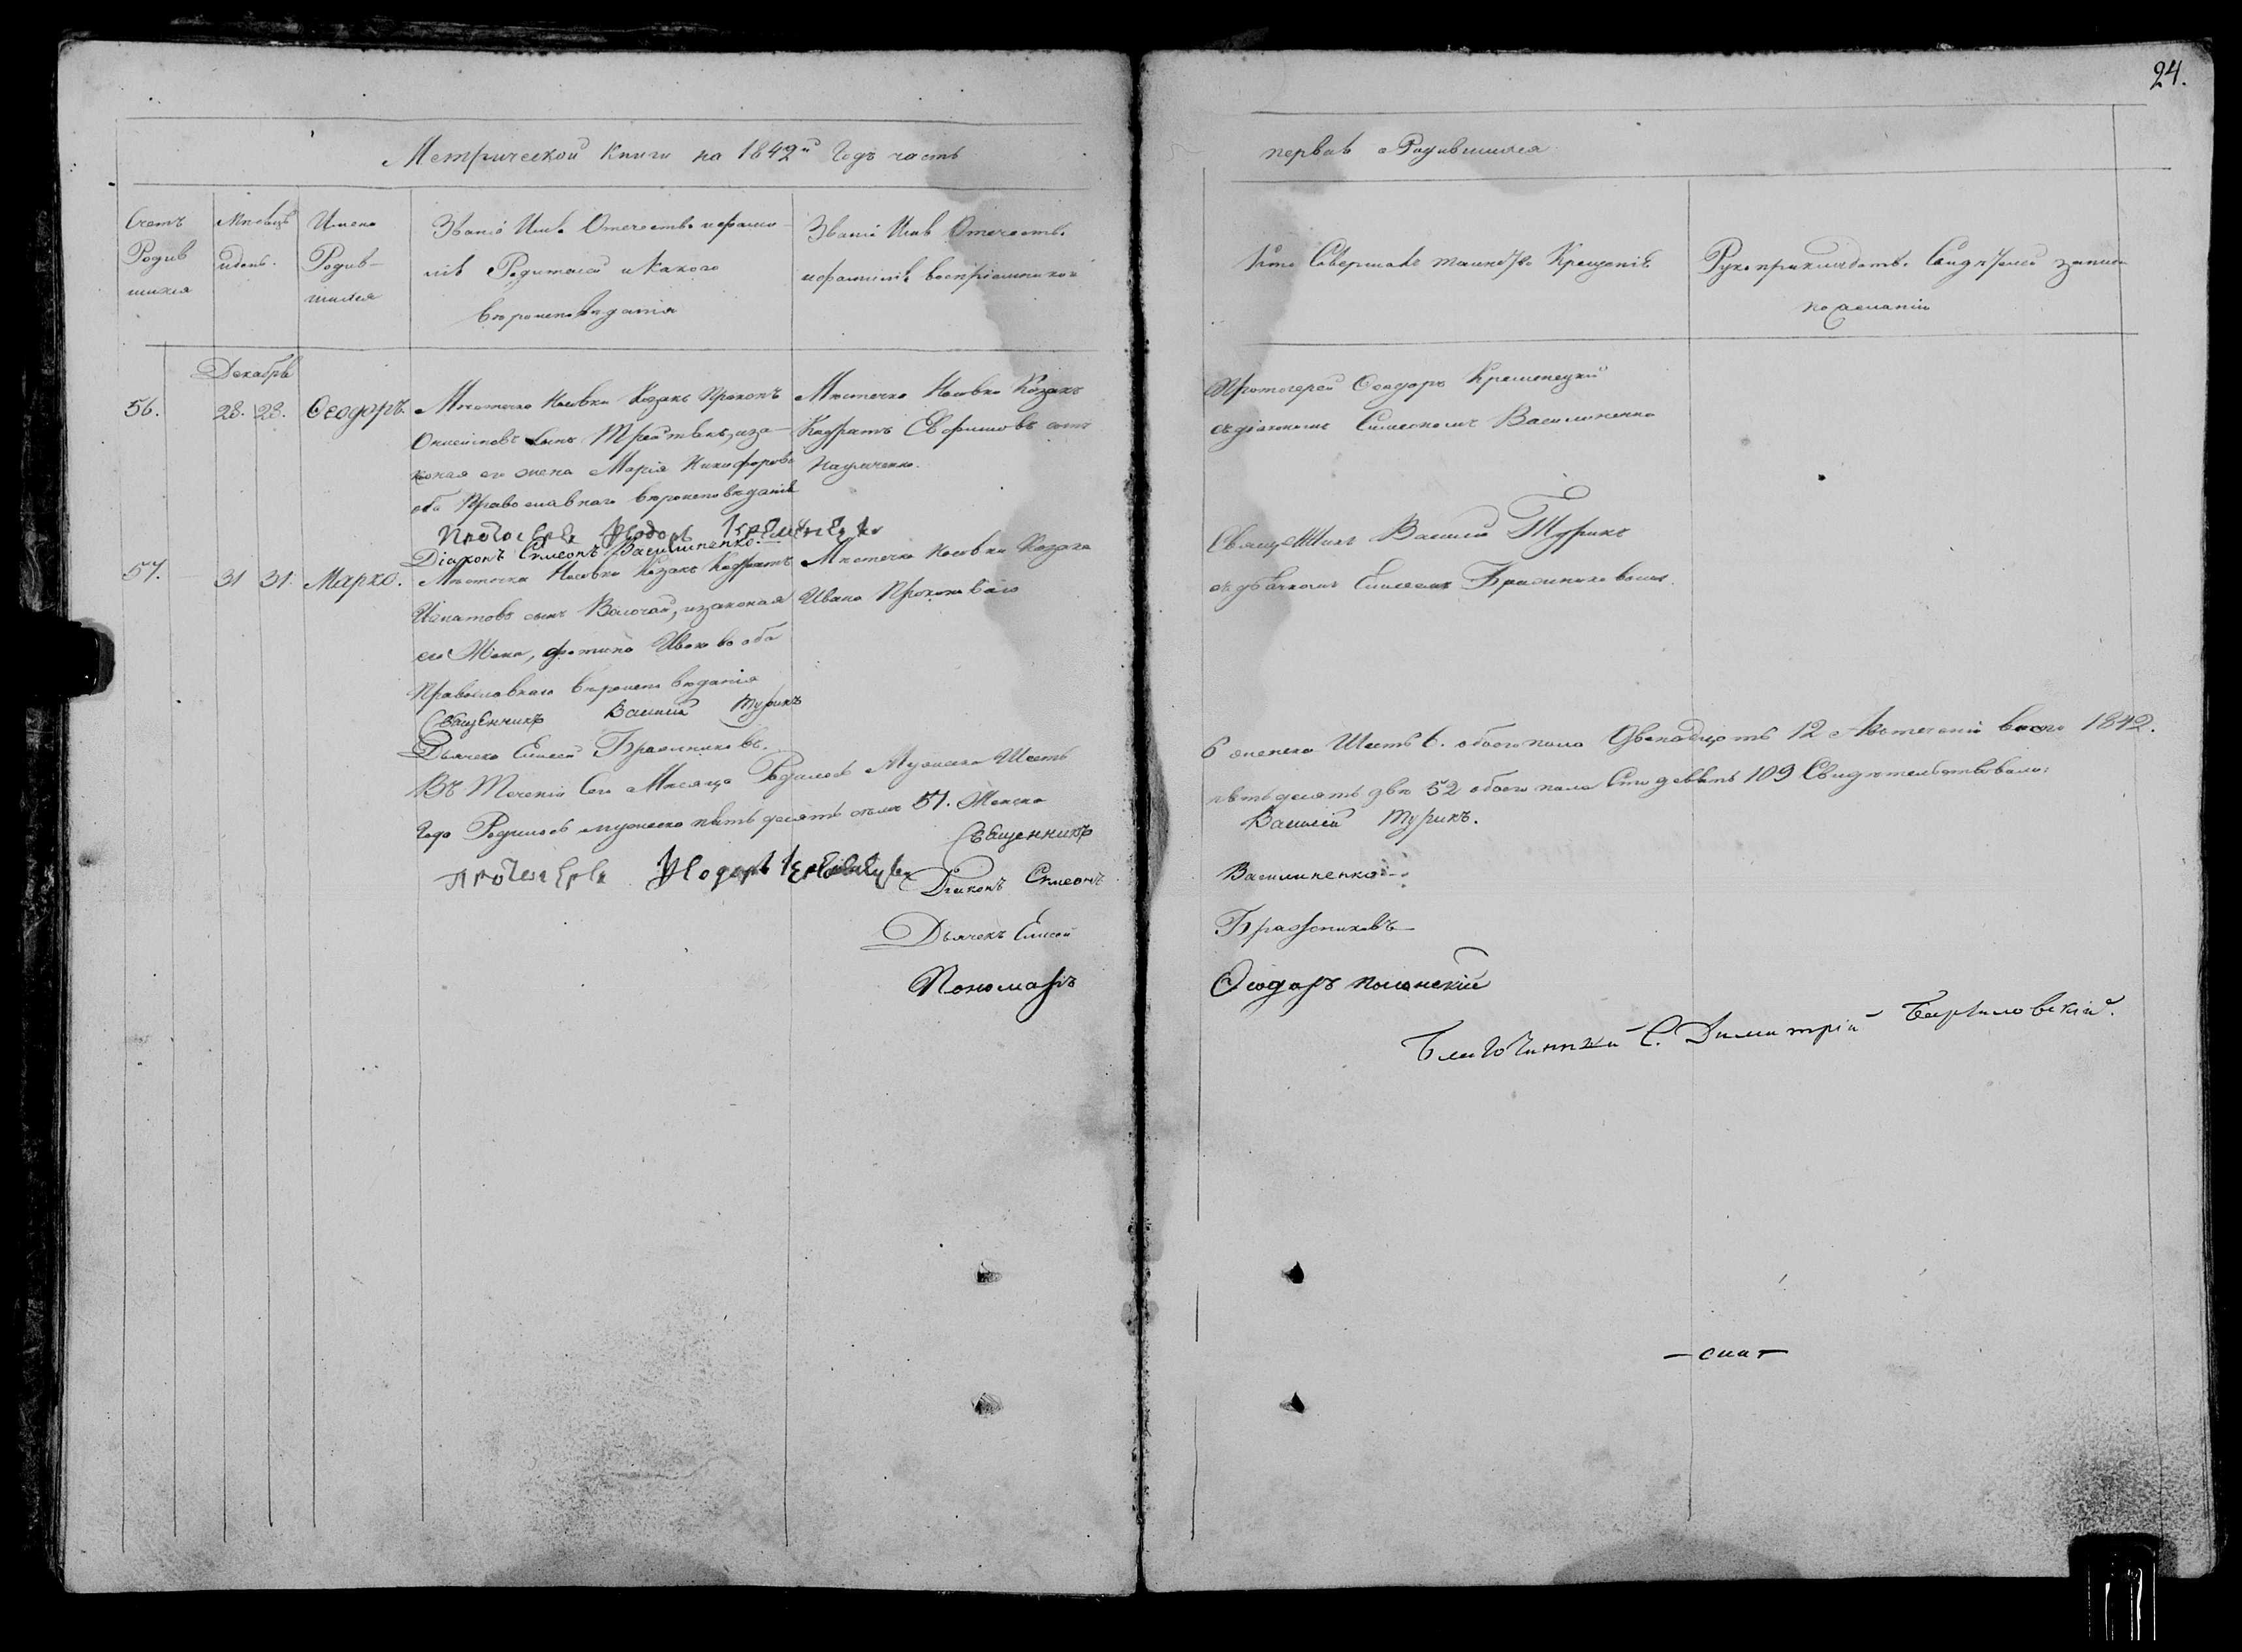 24.
Метрической Книги на 1842й Годъ часть
перваѧ о Родившихся
Счетъ
Родив
шихся
Мѣсяцъ
и день.
Имена
Родив-
шихся
Званіе Имя Отечество и фами-
лія Родителей и Какого
вѣроисповѣданія
Званіе Имя Отечество
и фамилія воспріемниковъ
Кто Совершалъ таинство Крещенія
Рукоприкладство Свидѣтелей записи
по желанію
Декабрь
56.
28. 28.
Ѳеодоръ.
Мѣстечка Носовки Козакъ Прокопъ
сынъ за-
конная его жена Марія Никифорова
оба Православнаго вѣроисповѣданія
Протоіерей Ѳеодоръ Кременецкій
Діаконъ Симеонъ Василиненко.
Мѣстечка Носовки Козакъ
Кодратъ Евфимовъ сынъ
Науменко.
Протоіерей Ѳеодоръ Кременецкій
съ діакономъ Симеономъ Василиненко
57.
31 31.
Марко.
Мѣстечка Носовки Козакъ Кодратъ
Игнатовъ сынъ Волочай, и законая
его Жена, Фотина Иванова оба
Православнаго вѣроисповѣданія
Священникъ Василій Турикъ
Дьячекъ Елисей Бражниковъ.
Мѣстечка Носовки Козака
Ивана
Священникъ Василій Турикъ
съ дьячкомъ Елисеемъ Бражниковымъ.
Въ Теченіи Сего Мѣсяца Родилось Мужеска Шесть
6 женска Шесть 6. обоего пола Двенадцать 12 А въ теченіи всего 1842.
Года Родилось мужеска пятьдесятъ семь 57. Женска
пятьдесятъ два 52 обоего пола Сто девять 109 Свидѣтельствовали:
Протоіерей Ѳеодоръ Кременецкій
Священникъ
Василій Турикъ.
Діаконъ Симеонъ
Василиненко
Дьячекъ Елисей
Бражниковъ
Пономарь
Ѳеодоръ Полонскій
Благочинный С. Димитрій